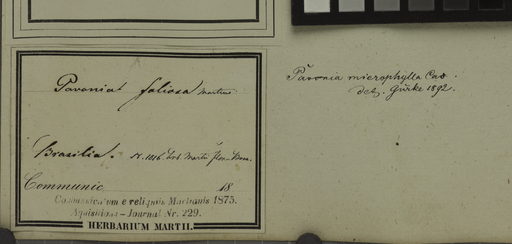 Pavonia foliosa Martius
Brasilia. N. 1016. Hrb. Martii flor. Bras.
Communic 18
Communicatum e reliquis Martianis 1875.
Aquisitions-Journal Nr. 229.
HERBARIUM MARTII.
Pavonia microphylla Cas.
det. Gürke 1892.